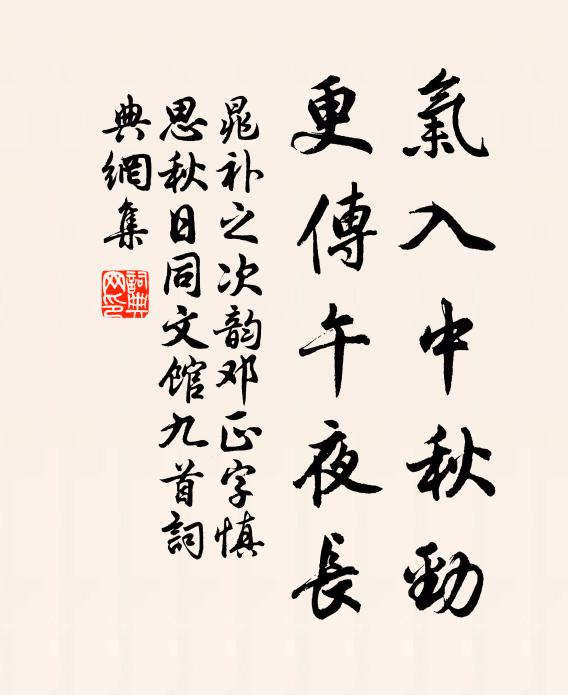 氣入中秋勁
更傳午夜長
晁补之次韵邓正字慎
思秋日同文馆九首詞
典網集
詞典網印